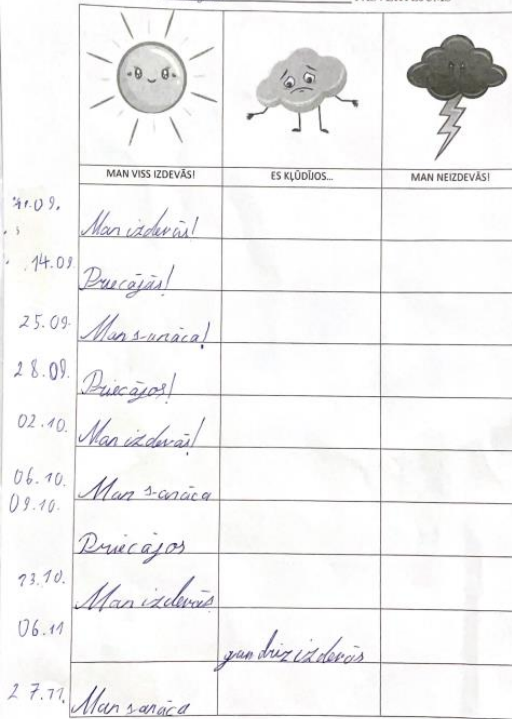 MAN VISS IZDEVĀS! ES KĻŪDĪJOS... MAN NEIZDEVĀS!
11.09. Man izdevās!
14.09. Priecājās!
25.09. Man s-anāca!
28.09. Priecājos!
02.10. Man izdevās!
06.10. Man s-anāca
09.10. Priecājos
23.10. Man izdevās
06.11 gandrīz izdevās
27.11. Man sanāca